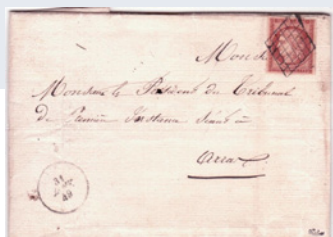 Monsieur
Monsieur le Président du Tribunal
de Première Instance Séant à
Arras
31
49